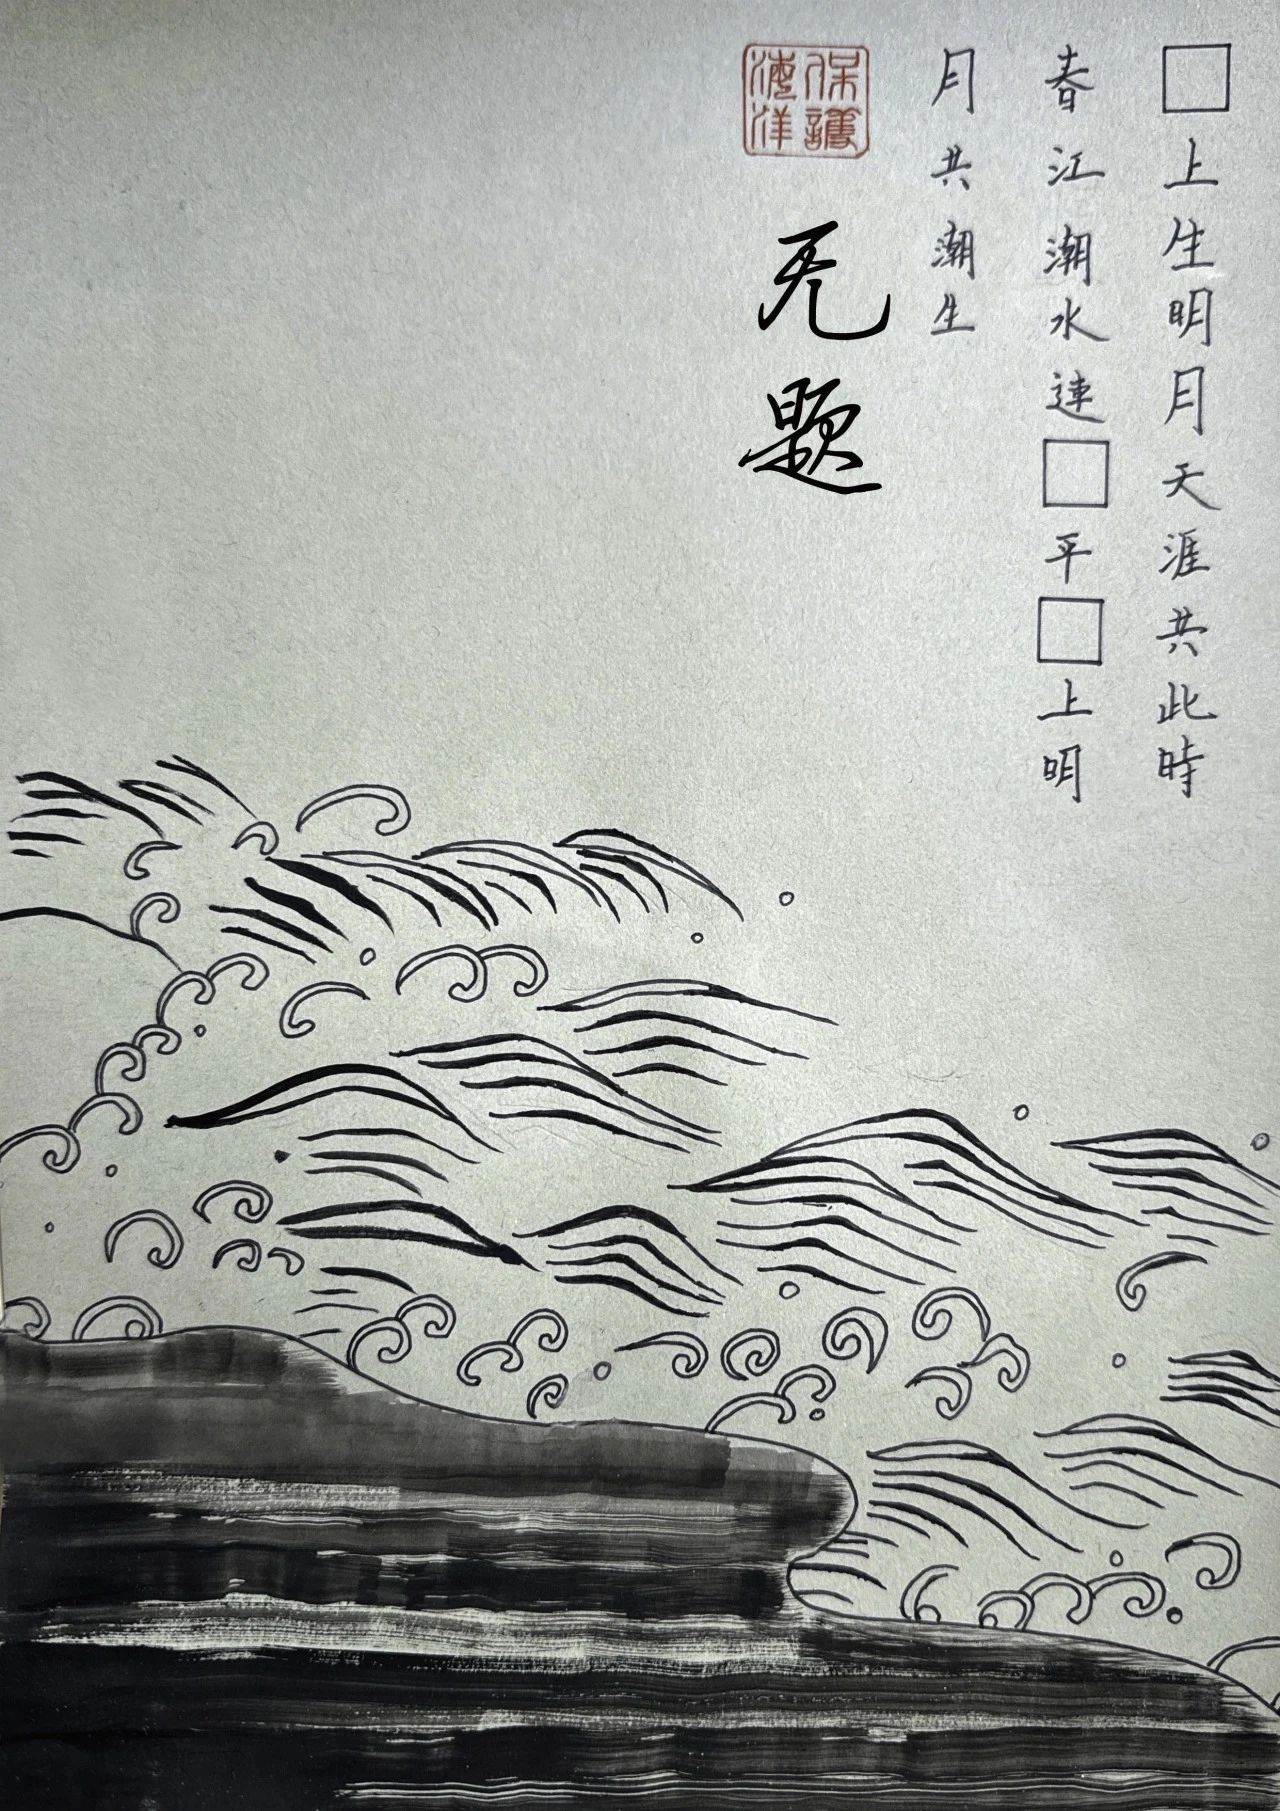 □上生明月天涯共此時
春江潮水連□平□上明
月共潮生
保護
海洋
无题